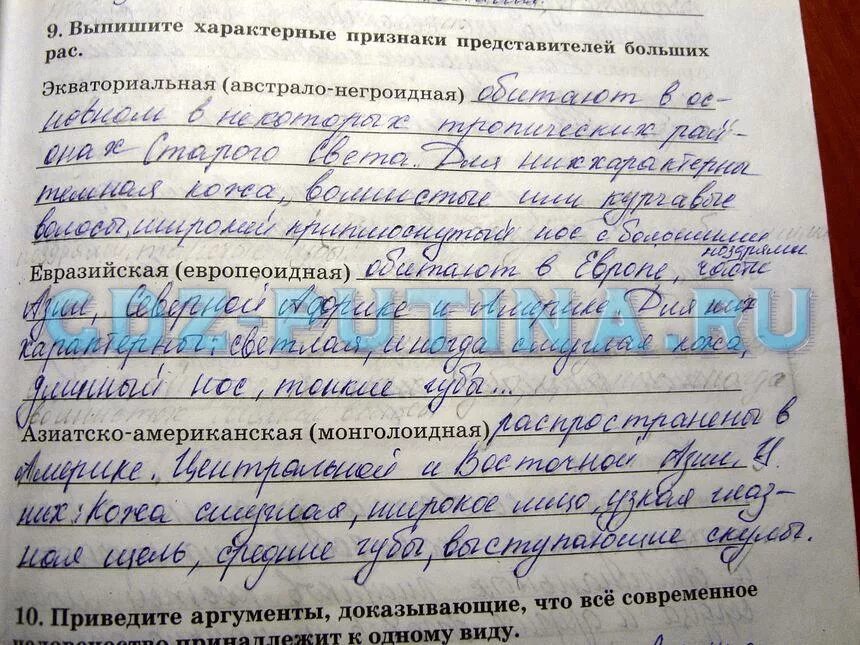 9. Выпишите характерные признаки представителей больших
рас.
Экваториальная (австрало-негроидная) обитают в ос-
новном в некоторых тропических рай-
онах Старого Света. Для них характерны
темная кожа, волнистые или курчавые
волосы, широкий приплюснутый нос с большими
ноздрями
Евразийская (европеоидная) обитают в Европе, части
Азии, Северной Африке и Америке. Для них
характерны: светлая, иногда смуглая кожа,
длинный нос, тонкие губы...
GDZ-PUTINA.RU
Азиатско-американская (монголоидная) распространены в
Америке, Центральной и Восточной Азии. У
них: Кожа смуглая, широкое лицо, узкая глаз-
ная щель, средние губы, выступающие скулы.
10. Приведите аргументы, доказывающие, что всё современное
человечество принадлежит к одному виду.